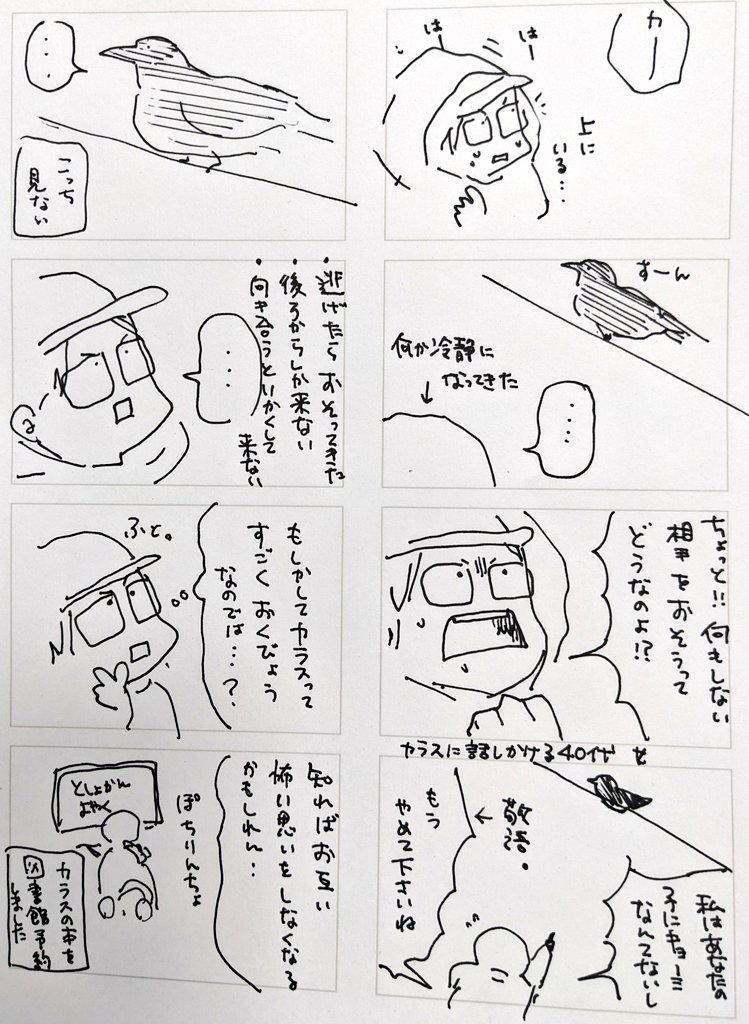 カー
はー
はー
上に
いる…
すーん
何か冷静に
なってきた
・・・・
ちょっと!! 何もしない
相手をおそうって
どうなのよ!?
カラスに話しかける40代 女
私はあなたの
子にキョーミ
なんてないし
もう
やめて下さいね
敬語。
・・・
こっち
見ない
・逃げたらおそってきた
・後ろからしか来ない
・向き合うといかくして
来ない
・・・
もしかしてカラスって
すごくおくびょう
なのでは…?
ふと。
知ればお互い
怖い思いをしなくなる
かもしれん…
ぽちりんちょ
としょかん
よやく
カラスの本を
図書館予約
しました